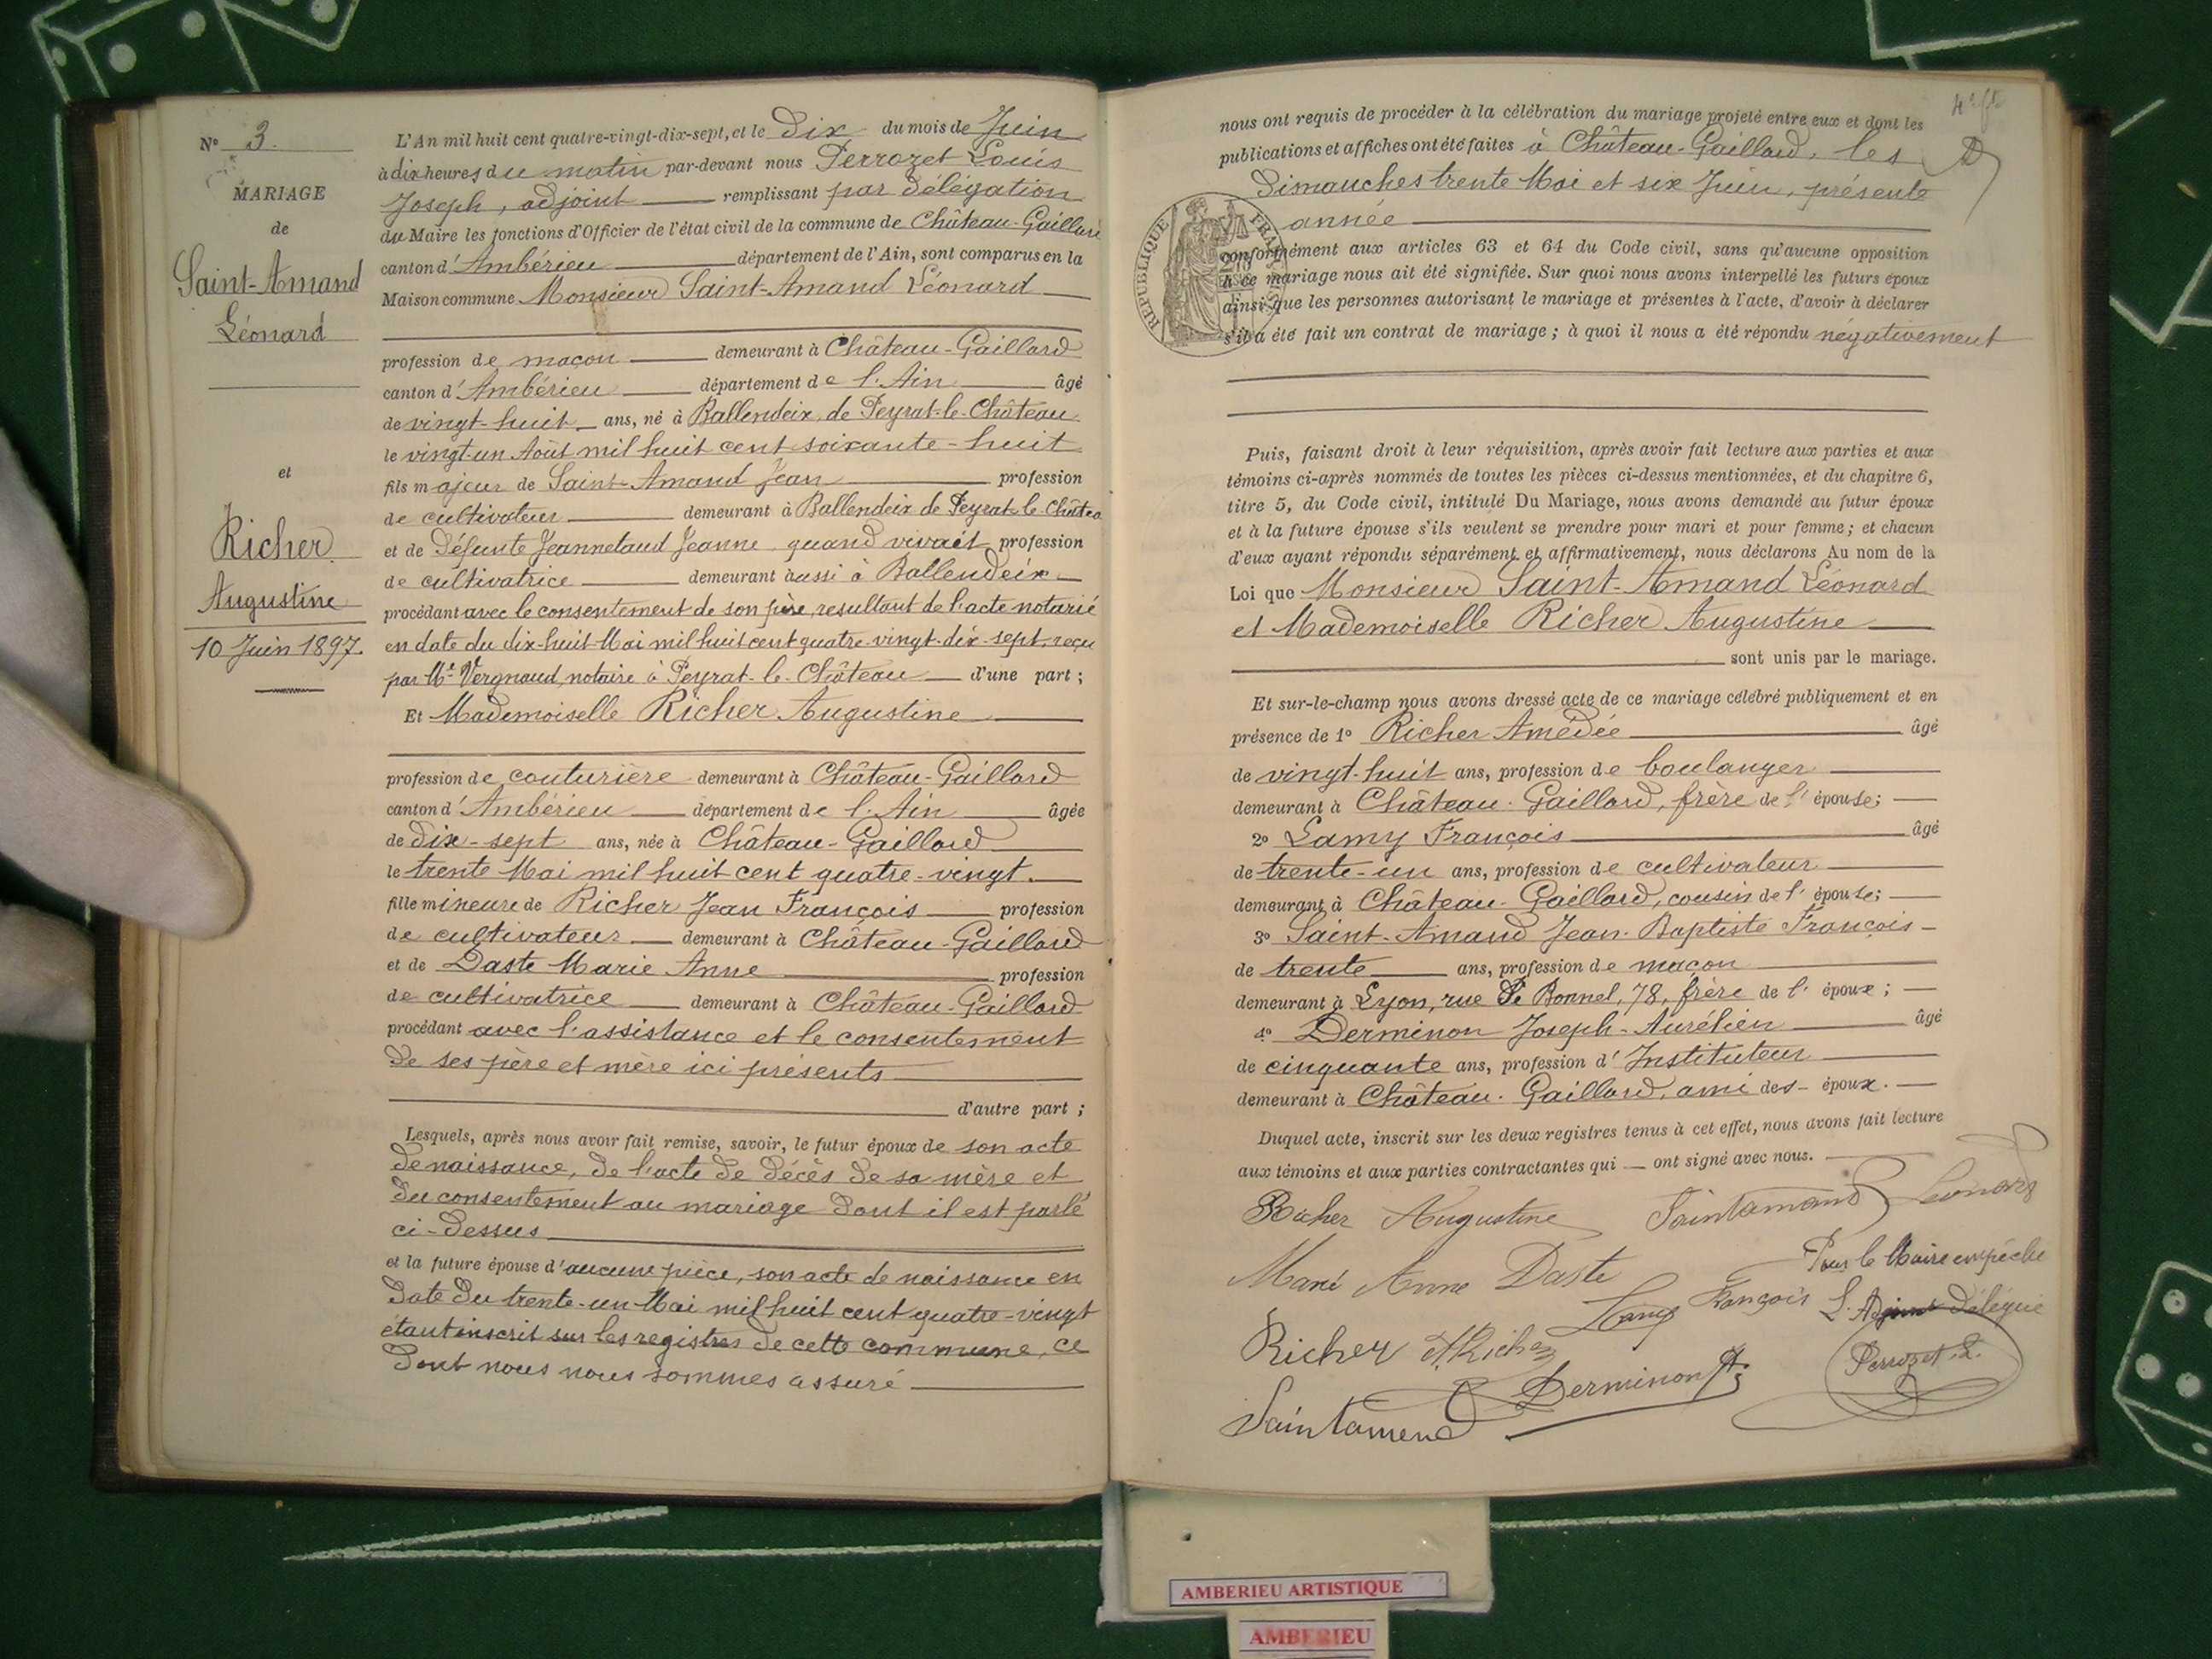 N° 3.
MARIAGE
de
Saint-Amand
Léonard
et
Richer
Augustine
10 Juin 1897.
L'An mil huit cent quatre-vingt-dix-sept, et le Dix du mois de Juin
à dix heures du matin par-devant nous Perrozet Louis
Joseph, adjoint remplissant par délégation
du Maire les fonctions d'Officier de l'état civil de la commune de Château-Gaillard
canton d'Ambérieu département de l'Ain, sont comparus en la
Maison commune Monsieur Saint-Amand Léonard
profession de maçon demeurant à Château-Gaillard
canton d'Ambérieu département de l'Ain âgé
de vingt-huit ans, né à Ballendeix de Peyrat-le-Château
le vingt-un Août mil huit cent soixante-huit
fils majeur de Saint-Amand Jean profession
de cultivateur demeurant à Ballendeix de Peyrat-le-Châtea
et de Défunte Jeannetaud Jeanne quand vivait profession
de cultivatrice demeurant aussi à Ballendeix
procédant avec le consentement de son père, resultant de l'acte notarié
en date du dix-huit Mai mil huit cent quatre-vingt-dix-sept, reçu
par Me Vergnaud, notaire à Peyrat-le-Château d'une part ;
Et Mademoiselle Richer Augustine
profession de couturière demeurant à Château-Gaillard
canton d'Ambérieu département de l'Ain âgée
de dix-sept ans, née à Château-Gaillard
le trente Mai mil huit cent quatre-vingt.
fille mineure de Richer Jean François profession
de cultivateur demeurant à Château-Gaillard
et de Daste Marie Anne profession
de cultivatrice demeurant à Château-Gaillard
procédant avec l'assistance et le consentement
de ses père et mère ici présents
d'autre part ;
Lesquels, après nous avoir fait remise, savoir, le futur époux de son acte
de naissance, de l'acte de décès de sa mère et
du consentement au mariage dont il est parlé
ci-dessus
et la future épouse d'aucune pièce, son acte de naissance en
date du trente-un Mai mil huit cent quatre-vingt
étant inscrit sur les registres de cette commune, ce
dont nous nous sommes assuré
nous ont requis de procéder à la célébration du mariage projeté entre eux et dont les
publications et affiches ont été faites à Château-Gaillard, les
Dimanches trente Mai et six Juin, présente
année
RÉPUBLIQUE FRANÇAISE
conformément aux articles 63 et 64 du Code civil, sans qu'aucune opposition
à ce mariage nous ait été signifiée. Sur quoi nous avons interpellé les futurs époux
ainsi que les personnes autorisant le mariage et présentes à l'acte, d'avoir à déclarer
s'il a été fait un contrat de mariage ; à quoi il nous a été répondu négativement
Puis, faisant droit à leur réquisition, après avoir fait lecture aux parties et aux
témoins ci-après nommés de toutes les pièces ci-dessus mentionnées, et du chapitre 6,
titre 5, du Code civil, intitulé Du Mariage, nous avons demandé au futur époux
et à la future épouse s'ils veulent se prendre pour mari et pour femme ; et chacun
d'eux ayant répondu séparément et affirmativement, nous déclarons Au nom de la
Loi que Monsieur Saint-Amand Léonard
et Mademoiselle Richer Augustine
sont unis par le mariage.
Et sur-le-champ nous avons dressé acte de ce mariage célébré publiquement et en
présence de 1° Richer Amédée âgé
de vingt-huit ans, profession de boulanger
demeurant à Château-Gaillard, frère de l'épouse ;
2° Lamy François âgé
de trente-un ans, profession de cultivateur
demeurant à Château-Gaillard, cousin de l'épouse ;
3° Saint-Amand Jean-Baptiste François
de trente ans, profession de maçon
demeurant à Lyon, rue de Bonnel, 78, frère de l'époux ;
4° Derminon Joseph-Aurélien âgé
de cinquante ans, profession d'Instituteur
demeurant à Château-Gaillard, ami des époux.
Duquel acte, inscrit sur les deux registres tenus à cet effet, nous avons fait lecture
aux témoins et aux parties contractantes qui ont signé avec nous.
Richer Augustine Saintamand Leonard
Marie Anne Daste Pour le Maire empêché
Lamy François L'Adjoint Délégué
Richer A Richer Perrozet L.
Derminon
Saintamand
AMBERIEU ARTISTIQUE
AMBERIEU